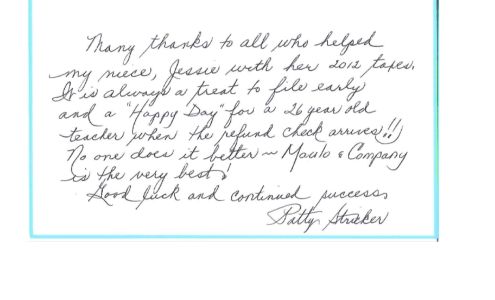 Many thanks to all who helped
my niece, Jessie with her 2012 taxes.
It is always a treat to file early
and a "Happy Day" for a 26 year old
teacher when the refund check arrives!!
No one does it better ~ Maulo & Company
is the very best!
Good luck and continued success,
Patty Stricker